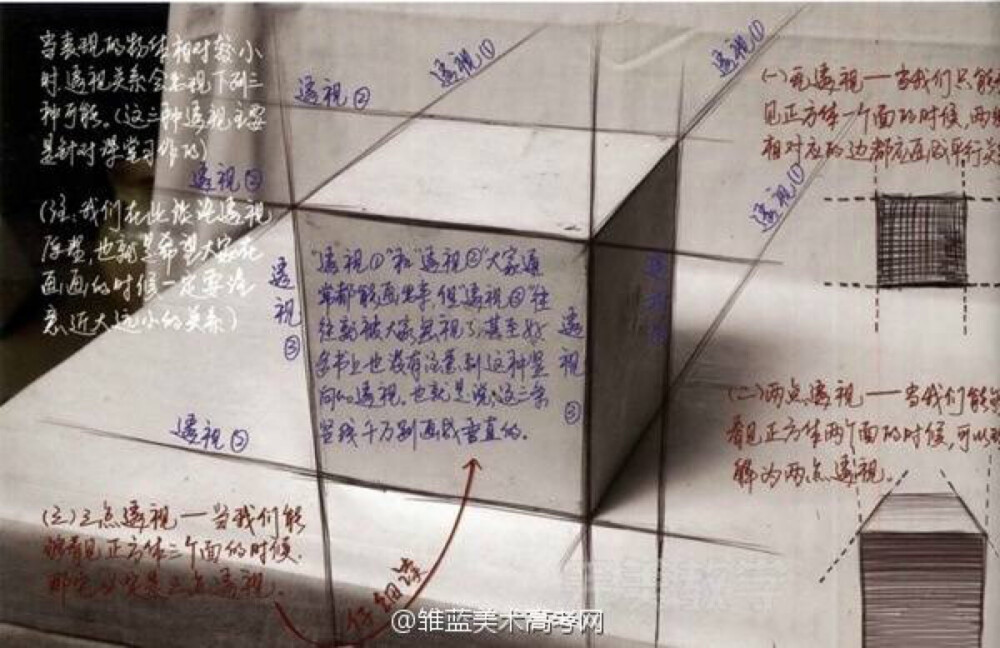 当表现的物体相对较小
时,透视关系会出现下列三
种可能。(这三种透视主要
是针对课堂习作的)
(注:我们在此谈论透视
原整,也就是希望大家在
画画的时候一定要注
意近大远小的关系)
透视②
透视①
透视①
透视②
透视①
透视③
透视③
透视②
"透视①"和"透视②"大家通
常都能画出来,但"透视③"往
往就被大家忽视了,甚至好
多书上也没有注意到这种竖
向的透视。也就是说:这三条
竖线千万别画成垂直的。
(一)死透视——当我们只能
见正方体一个面的时候,两
相对应的边都应画成平行关
(二)两点透视——当我们能
看见正方体两个面的时候,可以
解为两点透视。
(三)三点透视——当我们能
够看见正方体三个面的时候,
那它必定是三点透视。
仔细读
@雏蓝美术高考网